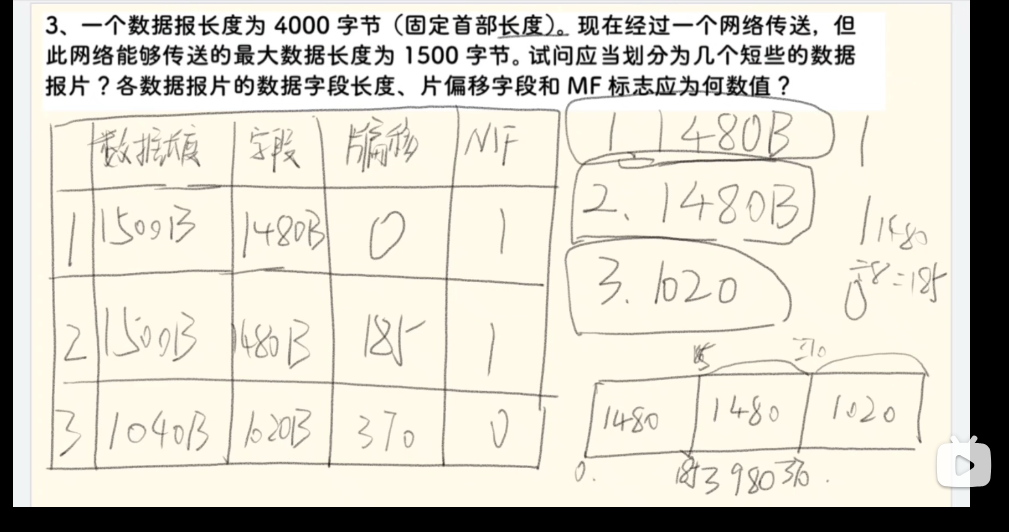 3、一个数据报长度为 4000 字节（固定首部长度）。现在经过一个网络传送，但
此网络能够传送的最大数据长度为 1500 字节。试问应当划分为几个短些的数据
报片？各数据报片的数据字段长度、片偏移字段和 MF 标志应为何数值？
数据长度 字段 片偏移 MF
1 1500B 1480B 0 1
2 1500B 1480B 185 1
3 1040B 1020B 370 0
1. 1480B 1
2. 1480B 1
3. 1020 0
1480
÷8=185
185 370
1480 1480 1020
0. 185 3980 370.